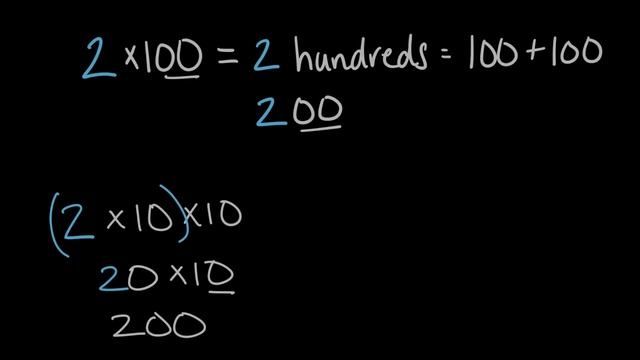 2 ×100 = 2 hundreds = 100 + 100
200
(2 ×10) ×10
20 ×10
200